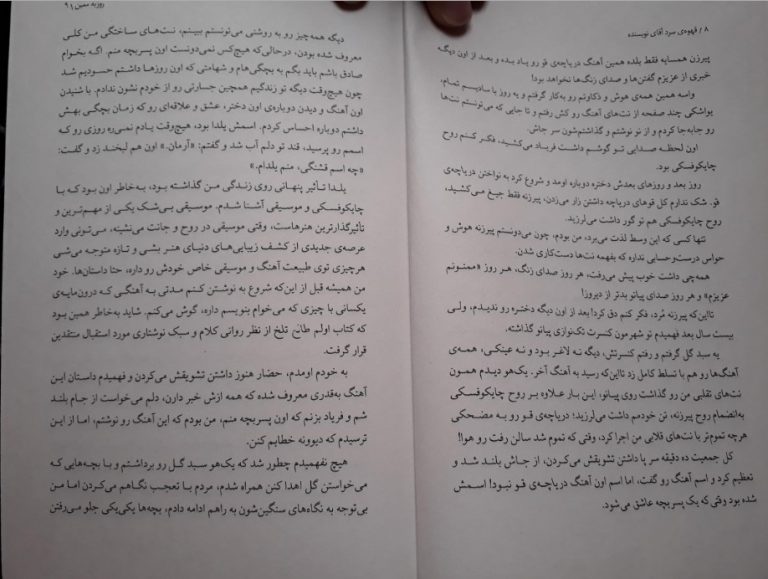 ۸ / قهوه‌ی سرد آقای نویسنده
پیرزن همسایه فقط بلده همین آهنگ دریاچه‌ی قو رو یاد بده و بعد از اون دیگه
خبری از عزیزم گفتن‌ها و صدای زنگ‌ها نخواهد بود!
واسه همین همه‌ی هوش و ذکاوتم رو به‌کار گرفتم و یه روز با سادیسم تمام،
یواشکی چند صفحه از نت‌های آهنگ رو کش رفتم و تا جایی که می‌تونستم نت‌ها
رو جابه‌جا کردم و از نو نوشتم و گذاشتم‌شون سر جاش.
اون لحظه صدایی تو گوشم داشت فریاد می‌کشید، فکر کنم روح
چایکوفسکی بود.
روز بعد و روزهای بعدش دختره دوباره اومد و شروع کرد به نواختن دریاچه‌ی
قو. شک ندارم کل قوهای دریاچه داشتن زار می‌زدن، پیرزنه فقط جیغ می‌کشید،
روح چایکوفسکی هم تو گور داشت می‌لرزید.
تنها کسی که این وسط لذت می‌برد، من بودم، چون می‌دونستم پیرزنه هوش و
حواس درست‌وحسابی نداره که بفهمه نت‌ها دست‌کاری شدن.
همه‌چی داشت خوب پیش می‌رفت، هر روز صدای زنگ، هر روز «ممنونم
عزیزم» و هر روز صدای پیانو بدتر از دیروز!
تااین‌که پیرزنه مُرد، فکر کنم دق کرد! بعد از اون دیگه دختره رو ندیدم، ولی
بیست سال بعد فهمیدم تو شهرمون کنسرت تک‌نوازی پیانو گذاشته.
یه سبد گل گرفتم و رفتم کنسرتش، دیگه نه لاغر بود و نه عینکی، همه‌ی
آهنگ‌ها رو هم با تسلط کامل زد تااین‌که رسید به آهنگ آخر. یک‌هو دیدم همون
نت‌های تقلبی من رو گذاشت روی پیانو، این بار علاوه بر روح چایکوفسکی
به‌انضمام روح پیرزنه، تن خودمم داشت می‌لرزید؛ دریاچه‌ی قو رو به مضحکی
هرچه تموم‌تر با نت‌های قلابی من اجرا کرد، وقتی که تموم شد سالن رفت رو هوا!
کل جمعیت ده دقیقه سر پا داشتن تشویقش می‌کردن، از جاش بلند شد و
تعظیم کرد و اسم آهنگ رو گفت، اما اسم اون آهنگ دریاچه‌ی قو نبود! اسمش
شده بود وقتی که یک پسربچه عاشق می‌شود.
روزبه معین / ۹
دیگه همه‌چیز رو به روشنی می‌تونستم ببینم، نت‌های ساختگی من کلی
معروف شده بودن، درحالی‌که هیچ‌کس نمی‌دونست اون پسربچه منم. اگه بخوام
صادق باشم باید بگم به بچگی‌هام و شهامتی که اون روزها داشتم حسودیم شد
چون هیچ‌وقت دیگه تو زندگیم همچین جسارتی رو از خودم نشون ندادم. با شنیدن
اون آهنگ و دیدن دوباره‌ی اون دختر، عشق و علاقه‌ای رو که زمان بچگی بهش
داشتم دوباره احساس کردم. اسمش یلدا بود، هیچ‌وقت یادم نمی‌ره روزی رو که
اسمم رو پرسید، قند تو دلم آب شد و گفتم: «آرمان.» اون هم لبخند زد و گفت:
«چه اسم قشنگی، منم یلدام.»
یلدا تأثیر پنهانی روی زندگی من گذاشته بود، به‌خاطر اون بود که با
چایکوفسکی و موسیقی آشنا شدم. موسیقی بی‌شک یکی از مهم‌ترین و
تأثیرگذارترین هنرهاست، وقتی موسیقی در روح و جانت می‌نشینه، می‌تونی وارد
عرصه‌ی جدیدی از کشف زیبایی‌های دنیای هنر بشی و تازه متوجه می‌شی
هرچیزی توی طبیعت آهنگ و موسیقی خاص خودش رو داره، حتا داستان‌ها. خود
من همیشه قبل از این‌که شروع به نوشتن کنم مدتی به آهنگی که درون‌مایه‌ی
یکسانی با چیزی که می‌خوام بنویسم داره، گوش می‌کنم. شاید به‌خاطر همین بود
که کتاب اولم تلخ از نظر روانی کلام و سبک نوشتاری مورد استقبال منتقدین
قرار گرفت.
به خودم اومدم، حضار هنوز داشتن تشویقش می‌کردن و فهمیدم داستان این
آهنگ به‌قدری معروف شده که همه ازش خبر دارن، دلم می‌خواست از جام بلند
شم و فریاد بزنم که اون پسربچه منم، من بودم که این آهنگ رو نوشتم، اما از این
ترسیدم که دیوونه خطابم کنن.
هیچ نفهمیدم چطور شد که یک‌هو سبد گل رو برداشتم و با بچه‌هایی که
می‌خواستن گل اهدا کنن همراه شدم، مردم با تعجب نگاهم می‌کردن اما من
بی‌توجه به نگاه‌های سنگین‌شون به راهم ادامه دادم، بچه‌ها یکی‌یکی جلو می‌رفتن